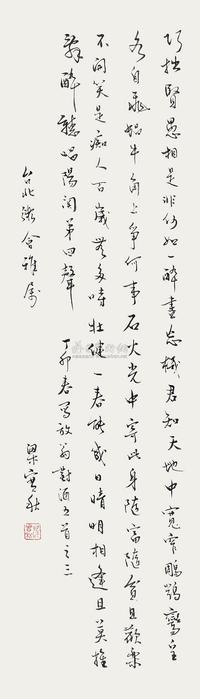 巧拙賢愚相是非何如一醉盡忘機君知天地中寬窄鵰鶚鸞皇
各自飛蝸牛角上爭何事石火光中寄此身隨富隨貧且歡樂
不開口笑是痴人百歲無多時壯健一春能幾日晴明相逢且莫推
辭醉聽唱陽關第四聲 丁卯春寫放翁對酒五首之三
台北 雅屬 梁實秋